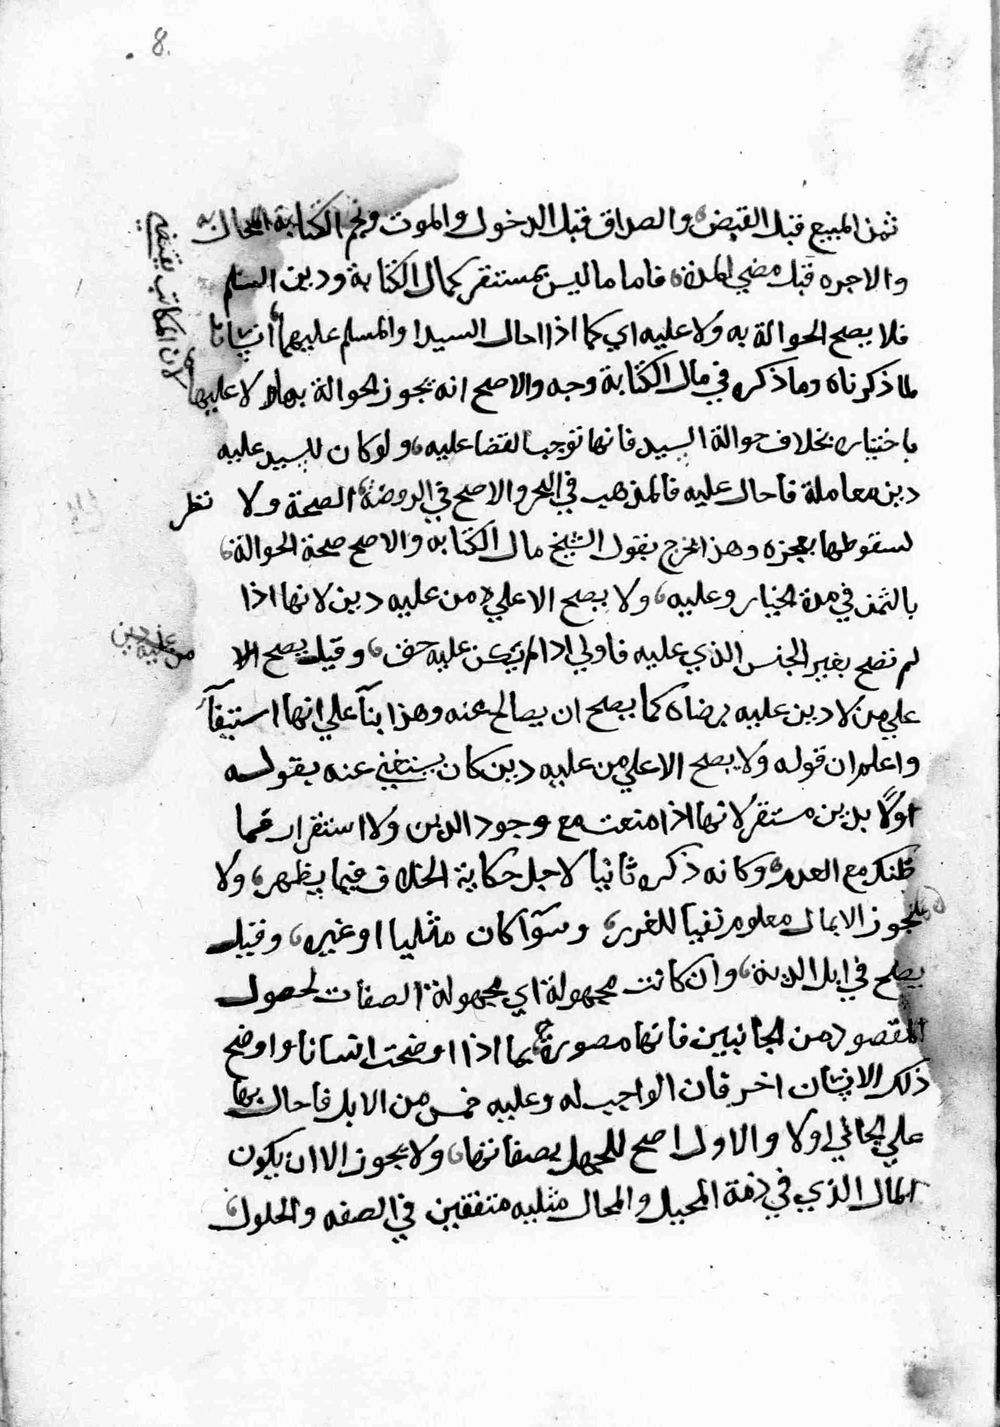 8.
ثمن المبيع قبل القبض والصداق قبل الدخول والموت ونجم الكتابة المحال به
والاجره قبل مضي المدة، فاما ما ليس بمستقر كمال الكتابة ودين السلم
فلا يصح الحوالة به ولا عليه اي كما اذا احال السيد او المسلم عليهما انسانا
لما ذكرناه وما ذكره في مال الكتابة وجه والاصح انه يجوز الحوالة بها لا عليها
لان المكاتب يقضي
باختياره بخلاف حوالة السيد فانها توجب القضا عليه، ولو كان للسيد عليه
دين معاملة فاحال عليه فالمذهب في البحر والاصح في الروضة الصحة ولا نظر
لسقوطها بعجزه وهذا يخرج بقول الشيخ مال الكتابة والاصح صحة الحوالة
بالثمن في مدة الخيار وعليه، ولا يصح الا علي من عليه دين لانها اذا
لم تصح بغير الجنس الذي عليه فاولي اذا لم يكن عليه حق، وقيل يصح الا
من عليه دين
علي من لا دين عليه برضاه كما يصح ان يصالح عنه وهذا بناً علي انها استيفاً
واعلم ان قوله ولا يصح الا علي من عليه دين كان يستغني عنه بقوله
اولاً بدين مستقر لانها اذا منعت مع وجود الدين ولا استقرار فما
ظنك مع العدم، وكانه ذكره ثانيا لاجل حكاية الخلاف فيما يظهر، ولا
يجوز الا بمال معلوم نفيا للغرر، وسوآ كان مثليا او غيره، وقيل
يصح في ابل الدية، وان كانت مجهولة اي مجهولة الصفات لحصول
المقصود من الجانبين فانها مصورة بما اذا اوضحت انسانا واوضح
ذلك الانسان اخر فان الواجب له وعليه خمس من الابل فاحال بها
علي الجاني اولا والاول اصح للجهل بصفاتها، ولا يجوز الا ان يكون
المال الذي في ذمة المحيل والمحال عليه متفقين في الصفه والحلول